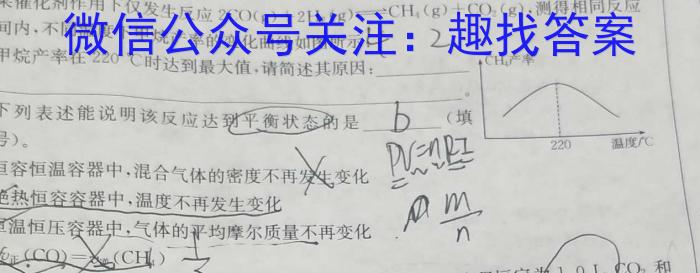 某催化剂作用下仅发生反应2CO(g)+2H₂(g)⇌CH₄(g)+CO₂(g),测得相同反应
微信公众号关注：趣找答案
甲烷产率在220℃时达到最大值,请简述其原因:
CH₄产率
220
温度/℃
下列表述能说明该反应达到平衡状态的是 b (填
号)。
恒容恒温容器中,混合气体的密度不再发生变化
PV=nRT
绝热恒容容器中,温度不再发生变化
恒温恒压容器中,气体的平均摩尔质量不再变化
m
n
正(CO)=
(CH₄)